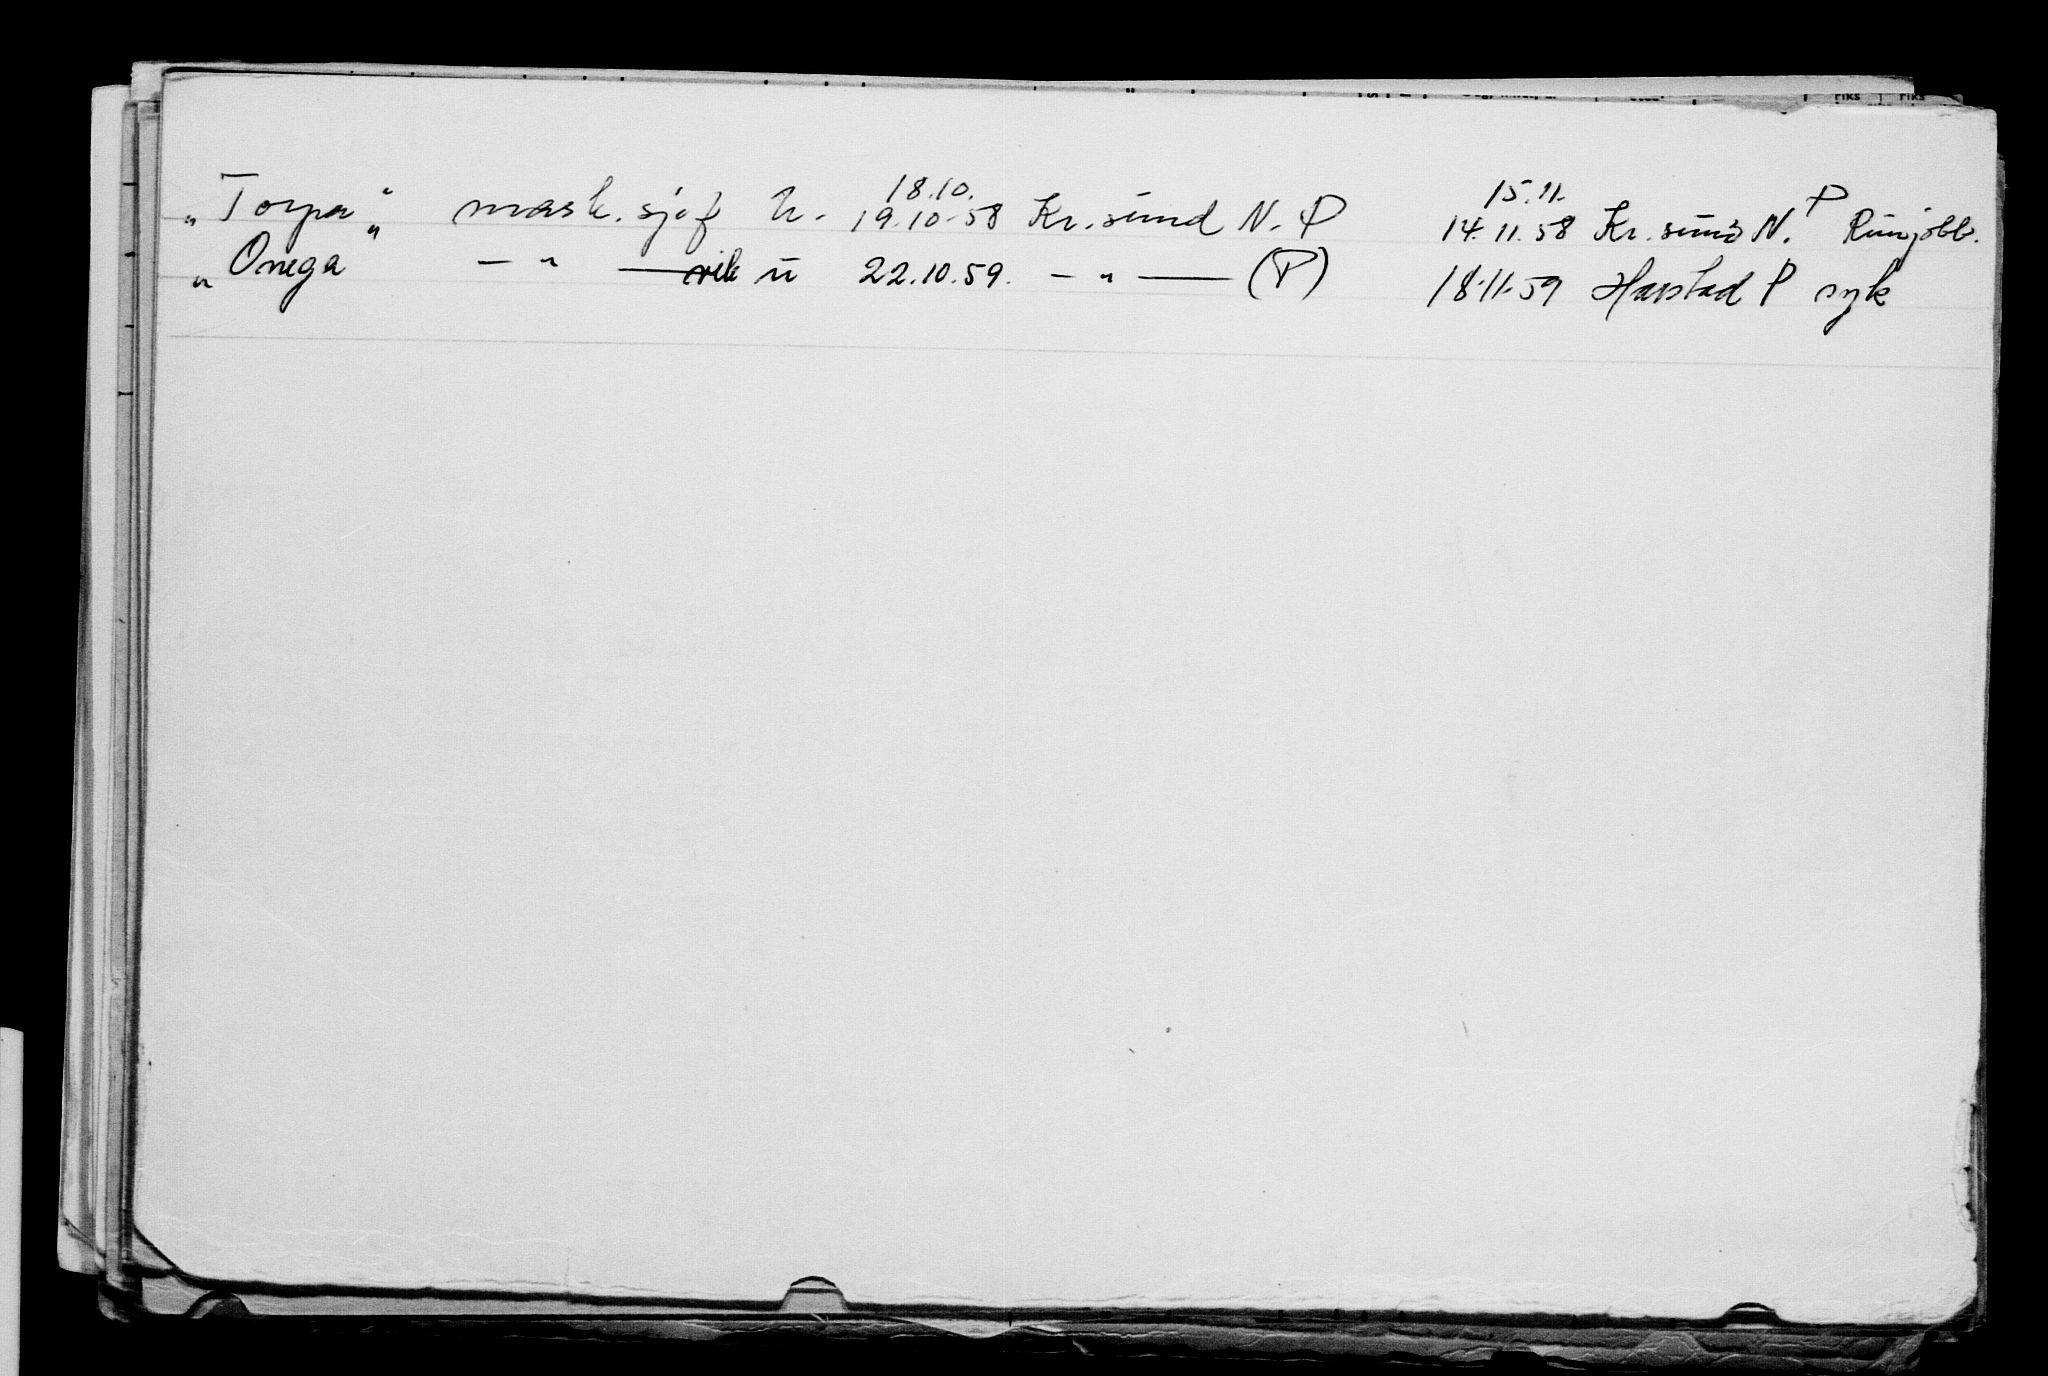 18.10. 15.11. P
„Torpa" mask. sjef u. 19.10-58 Kr.sund N. P 14.11.58 Kr.sund N. Runjobb.
„Onega" — " — vik u 22.10.59. — " — (P) 18.11.59 Harstad P syk
riks riks